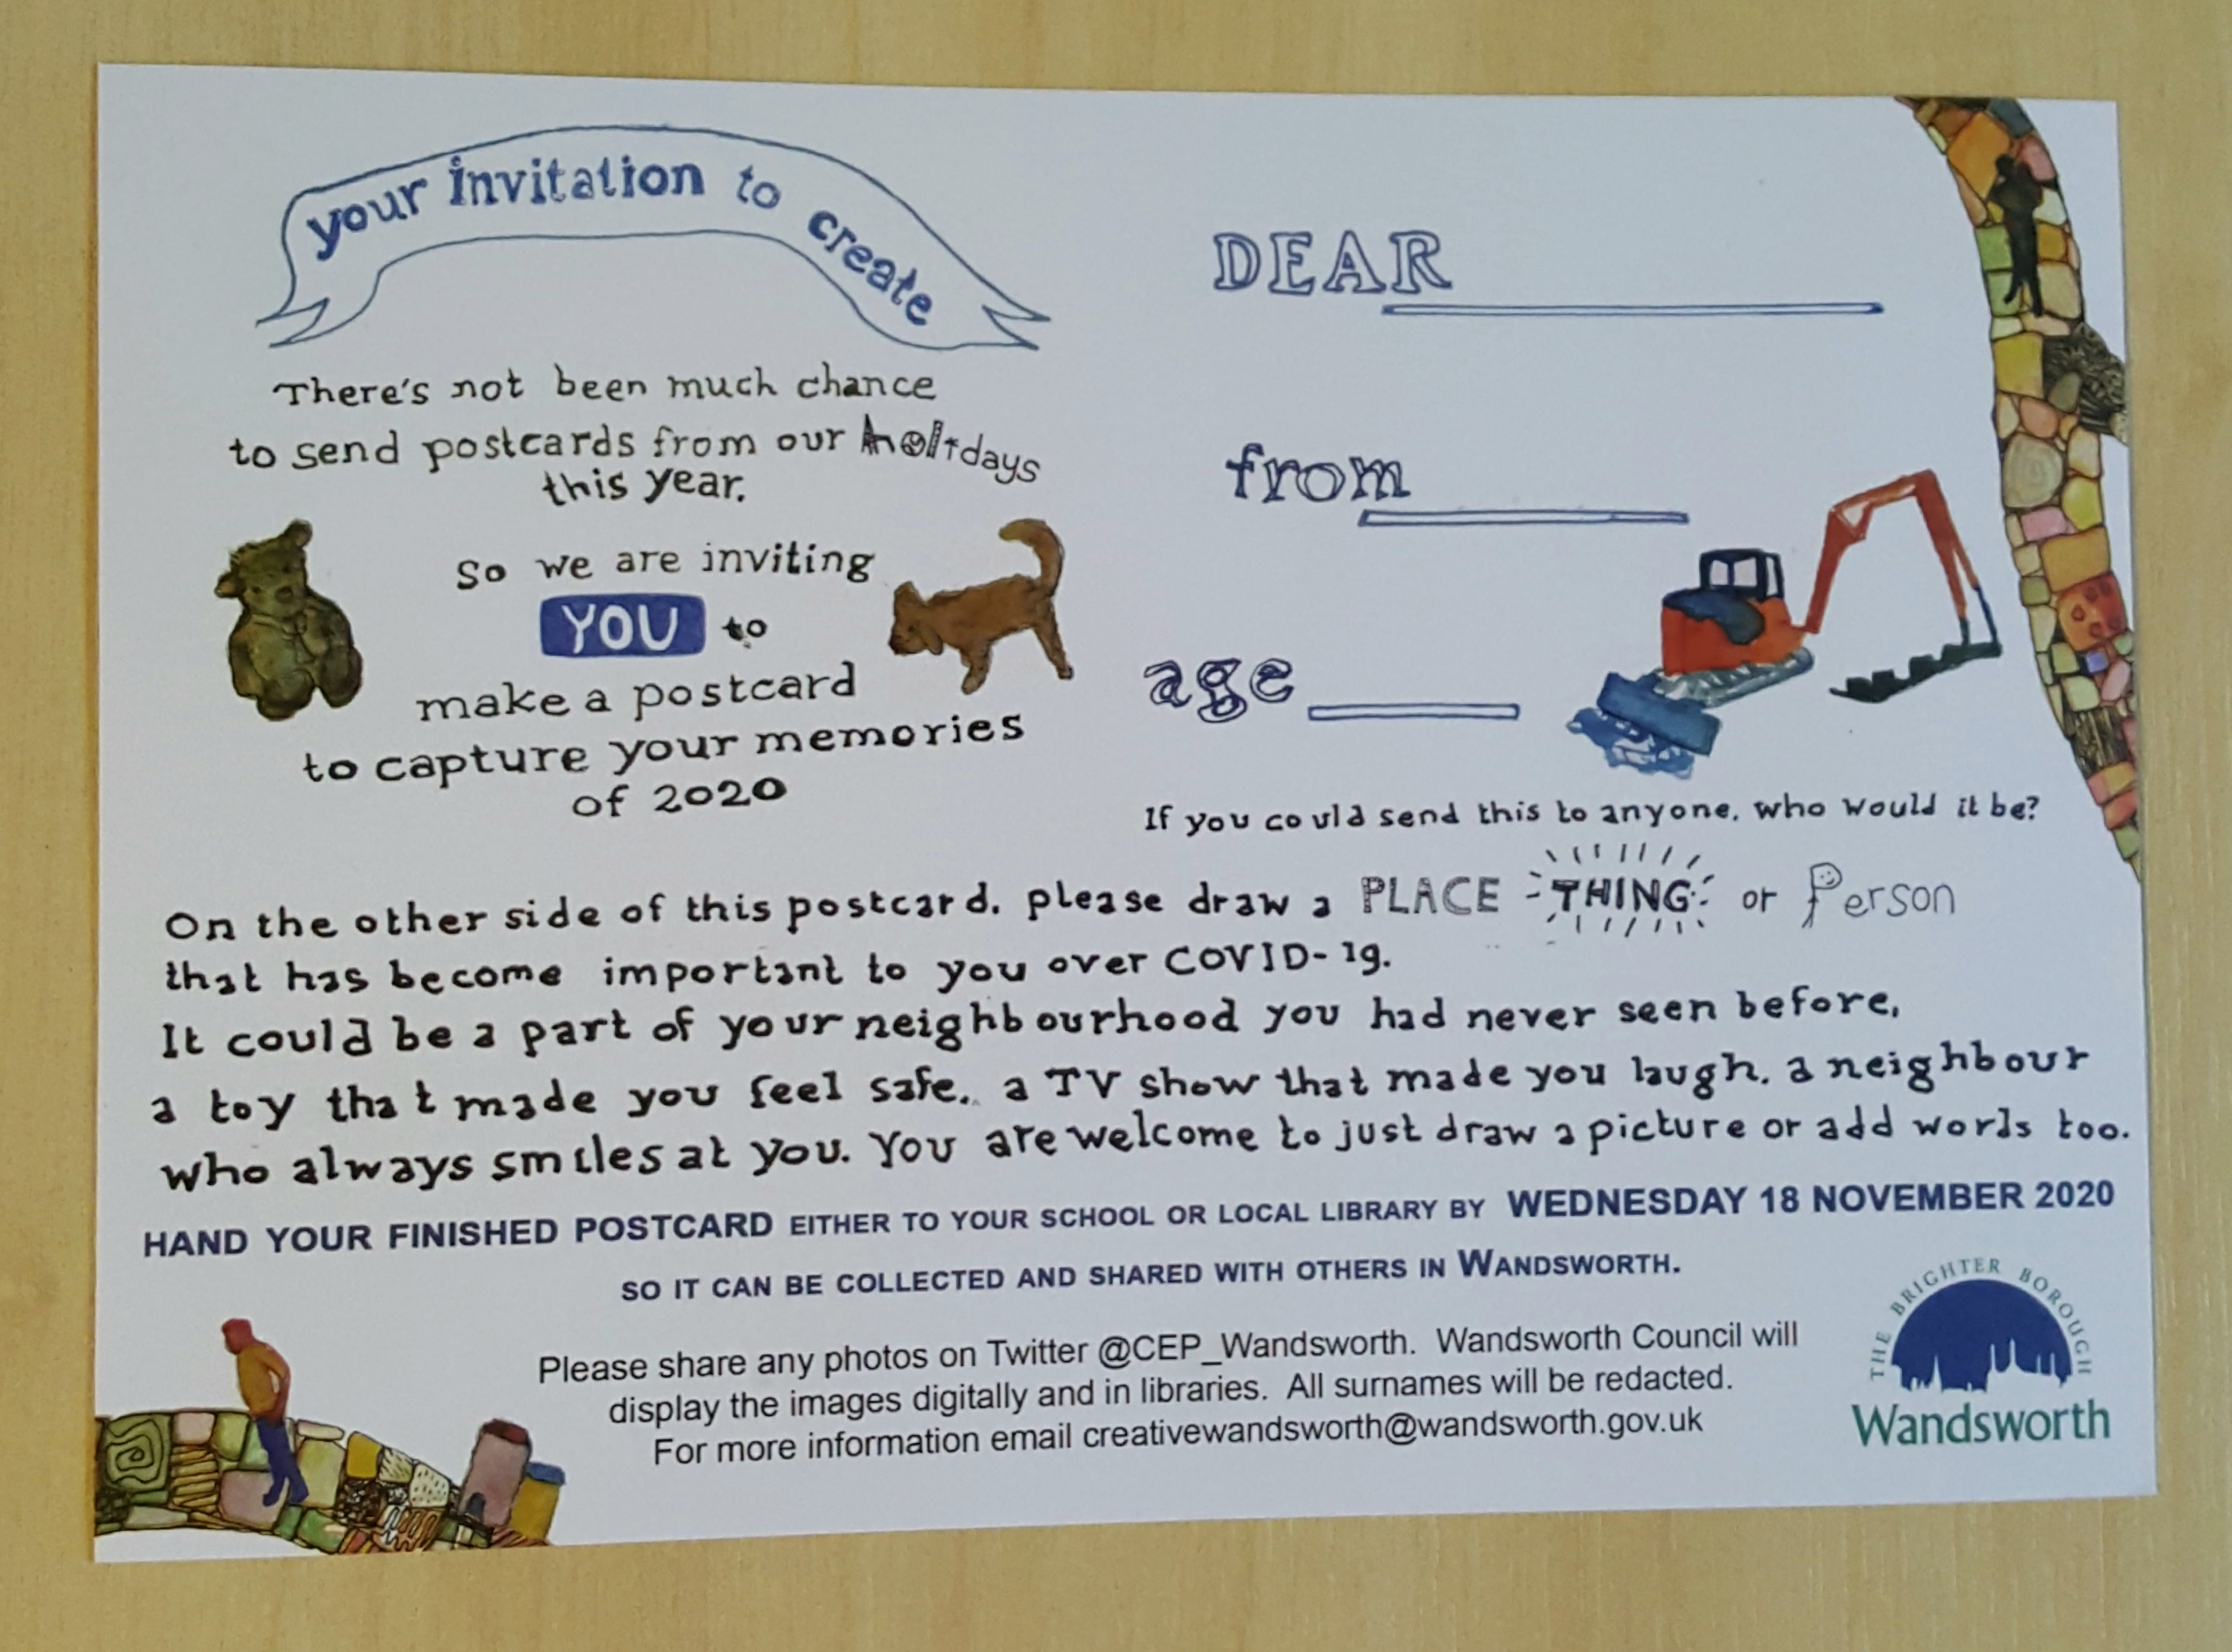 your invitation to create
There's not been much chance
to send postcards from our holidays
this year.
So we are inviting
YOU to
make a postcard
to capture your memories
of 2020
DEAR
from
age
If you could send this to anyone, who would it be?
On the other side of this postcard, please draw a PLACE THING or Person
that has become important to you over COVID-19.
It could be a part of your neighbourhood you had never seen before,
a toy that made you feel safe, a TV show that made you laugh, a neighbour
who always smiles at you. You are welcome to just draw a picture or add words too.
HAND YOUR FINISHED POSTCARD EITHER TO YOUR SCHOOL OR LOCAL LIBRARY BY WEDNESDAY 18 NOVEMBER 2020
SO IT CAN BE COLLECTED AND SHARED WITH OTHERS IN WANDSWORTH.
Please share any photos on Twitter @CEP_Wandsworth. Wandsworth Council will
display the images digitally and in libraries. All surnames will be redacted.
For more information email creativewandsworth@wandsworth.gov.uk
THE BRIGHTER BOROUGH
Wandsworth